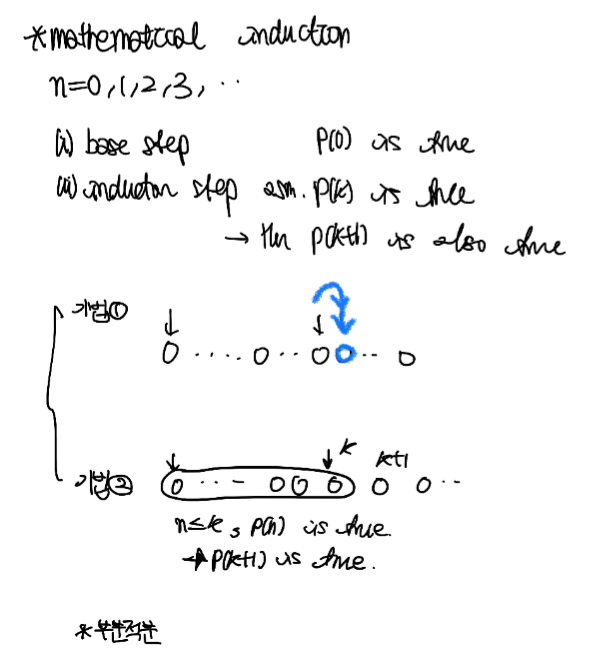 *mathematical induction
n=0,1,2,3,..
(i) base step P(0) is true
(ii) induction step asm. P(k) is true
→ then P(k+1) is also true
기법①
o .... o .. o o .. o
k k+1
기법② o ... o o o o o ..
n≤k, P(n) is true.
→ P(k+1) is true.
*부분적분